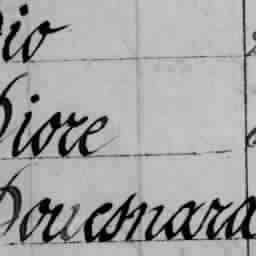 Dio
Diore
Douesnard